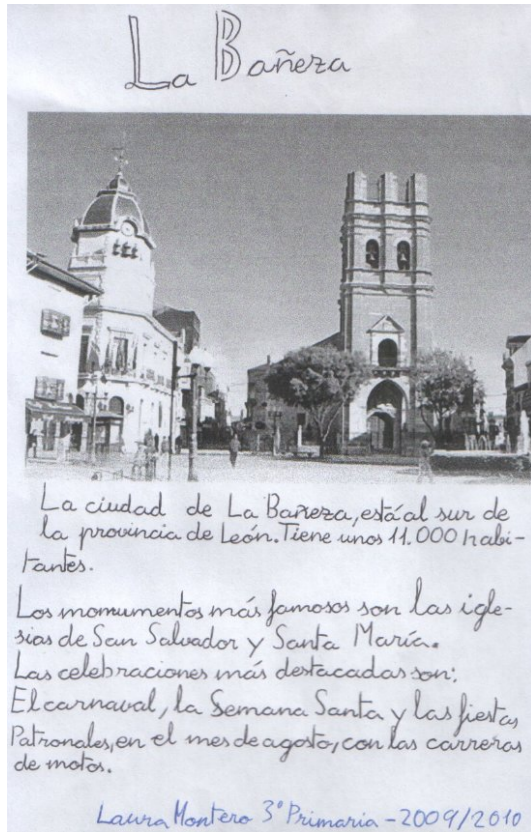 La Bañeza
La ciudad de La Bañeza, está al sur de
la provincia de León. Tiene unos 11.000 habi-
tantes.
Los momumentos más famosos son las igle-
sias de San Salvador y Santa María.
Las celebraciones más destacadas son:
El carnaval, la Semana Santa y las fiestas
Patronales, en el mes de agosto, con las carreras
de motos.
Laura Montero 3º Primaria - 2009/2010